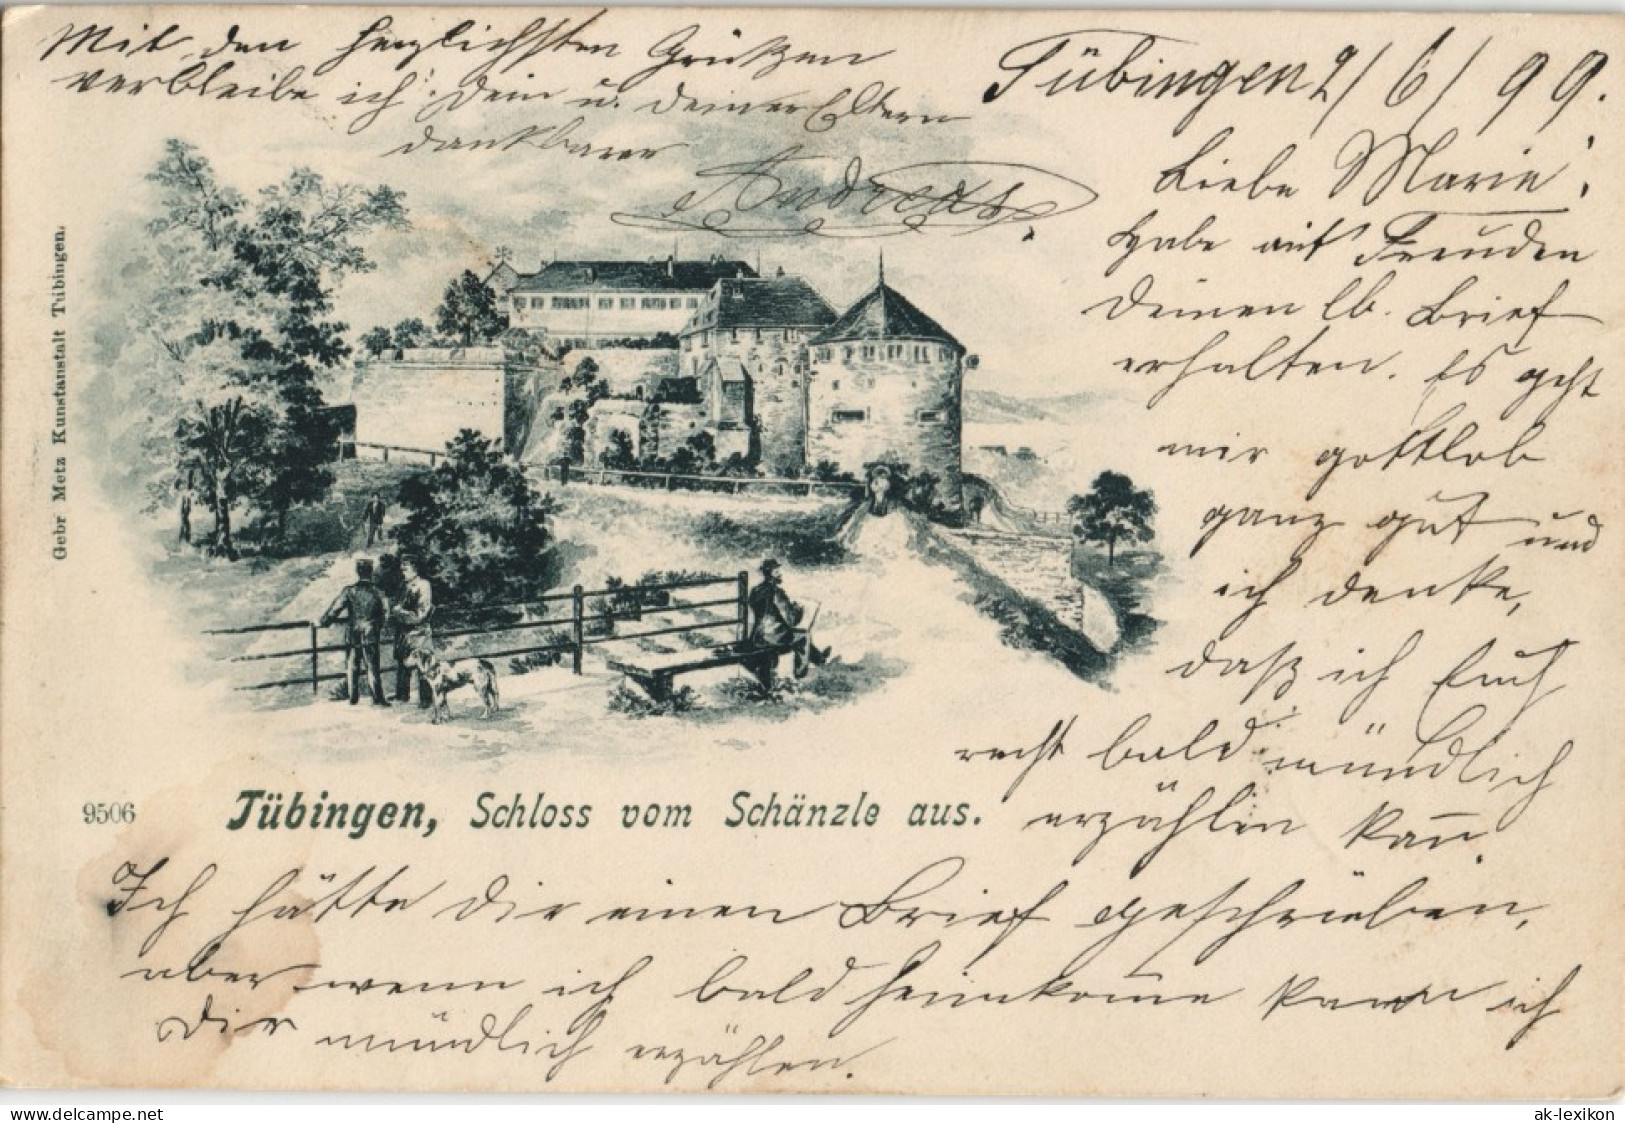 Tübingen 2/6/99.
Liebe Marie!
Habe mit Freuden
Deinen lb. Brief
erhalten. Es geht
mir gottlob
ganz gut und
ich denke,
daß ich Euch
recht bald mündlich
erzählen kann.
Ich hätte Dir einen Brief geschrieben,
aber wenn ich bald heimkome kann ich
Dir mündlich erzählen.
Mit den herzlichsten Grüßen
verbleibe ich Dein u. Deiner Eltern
dankbarer
Andreas
Gebr Metz Kunstanstalt Tübingen.
9506
Tübingen, Schloss vom Schänzle aus.
www.delcampe.net
ak-lexikon